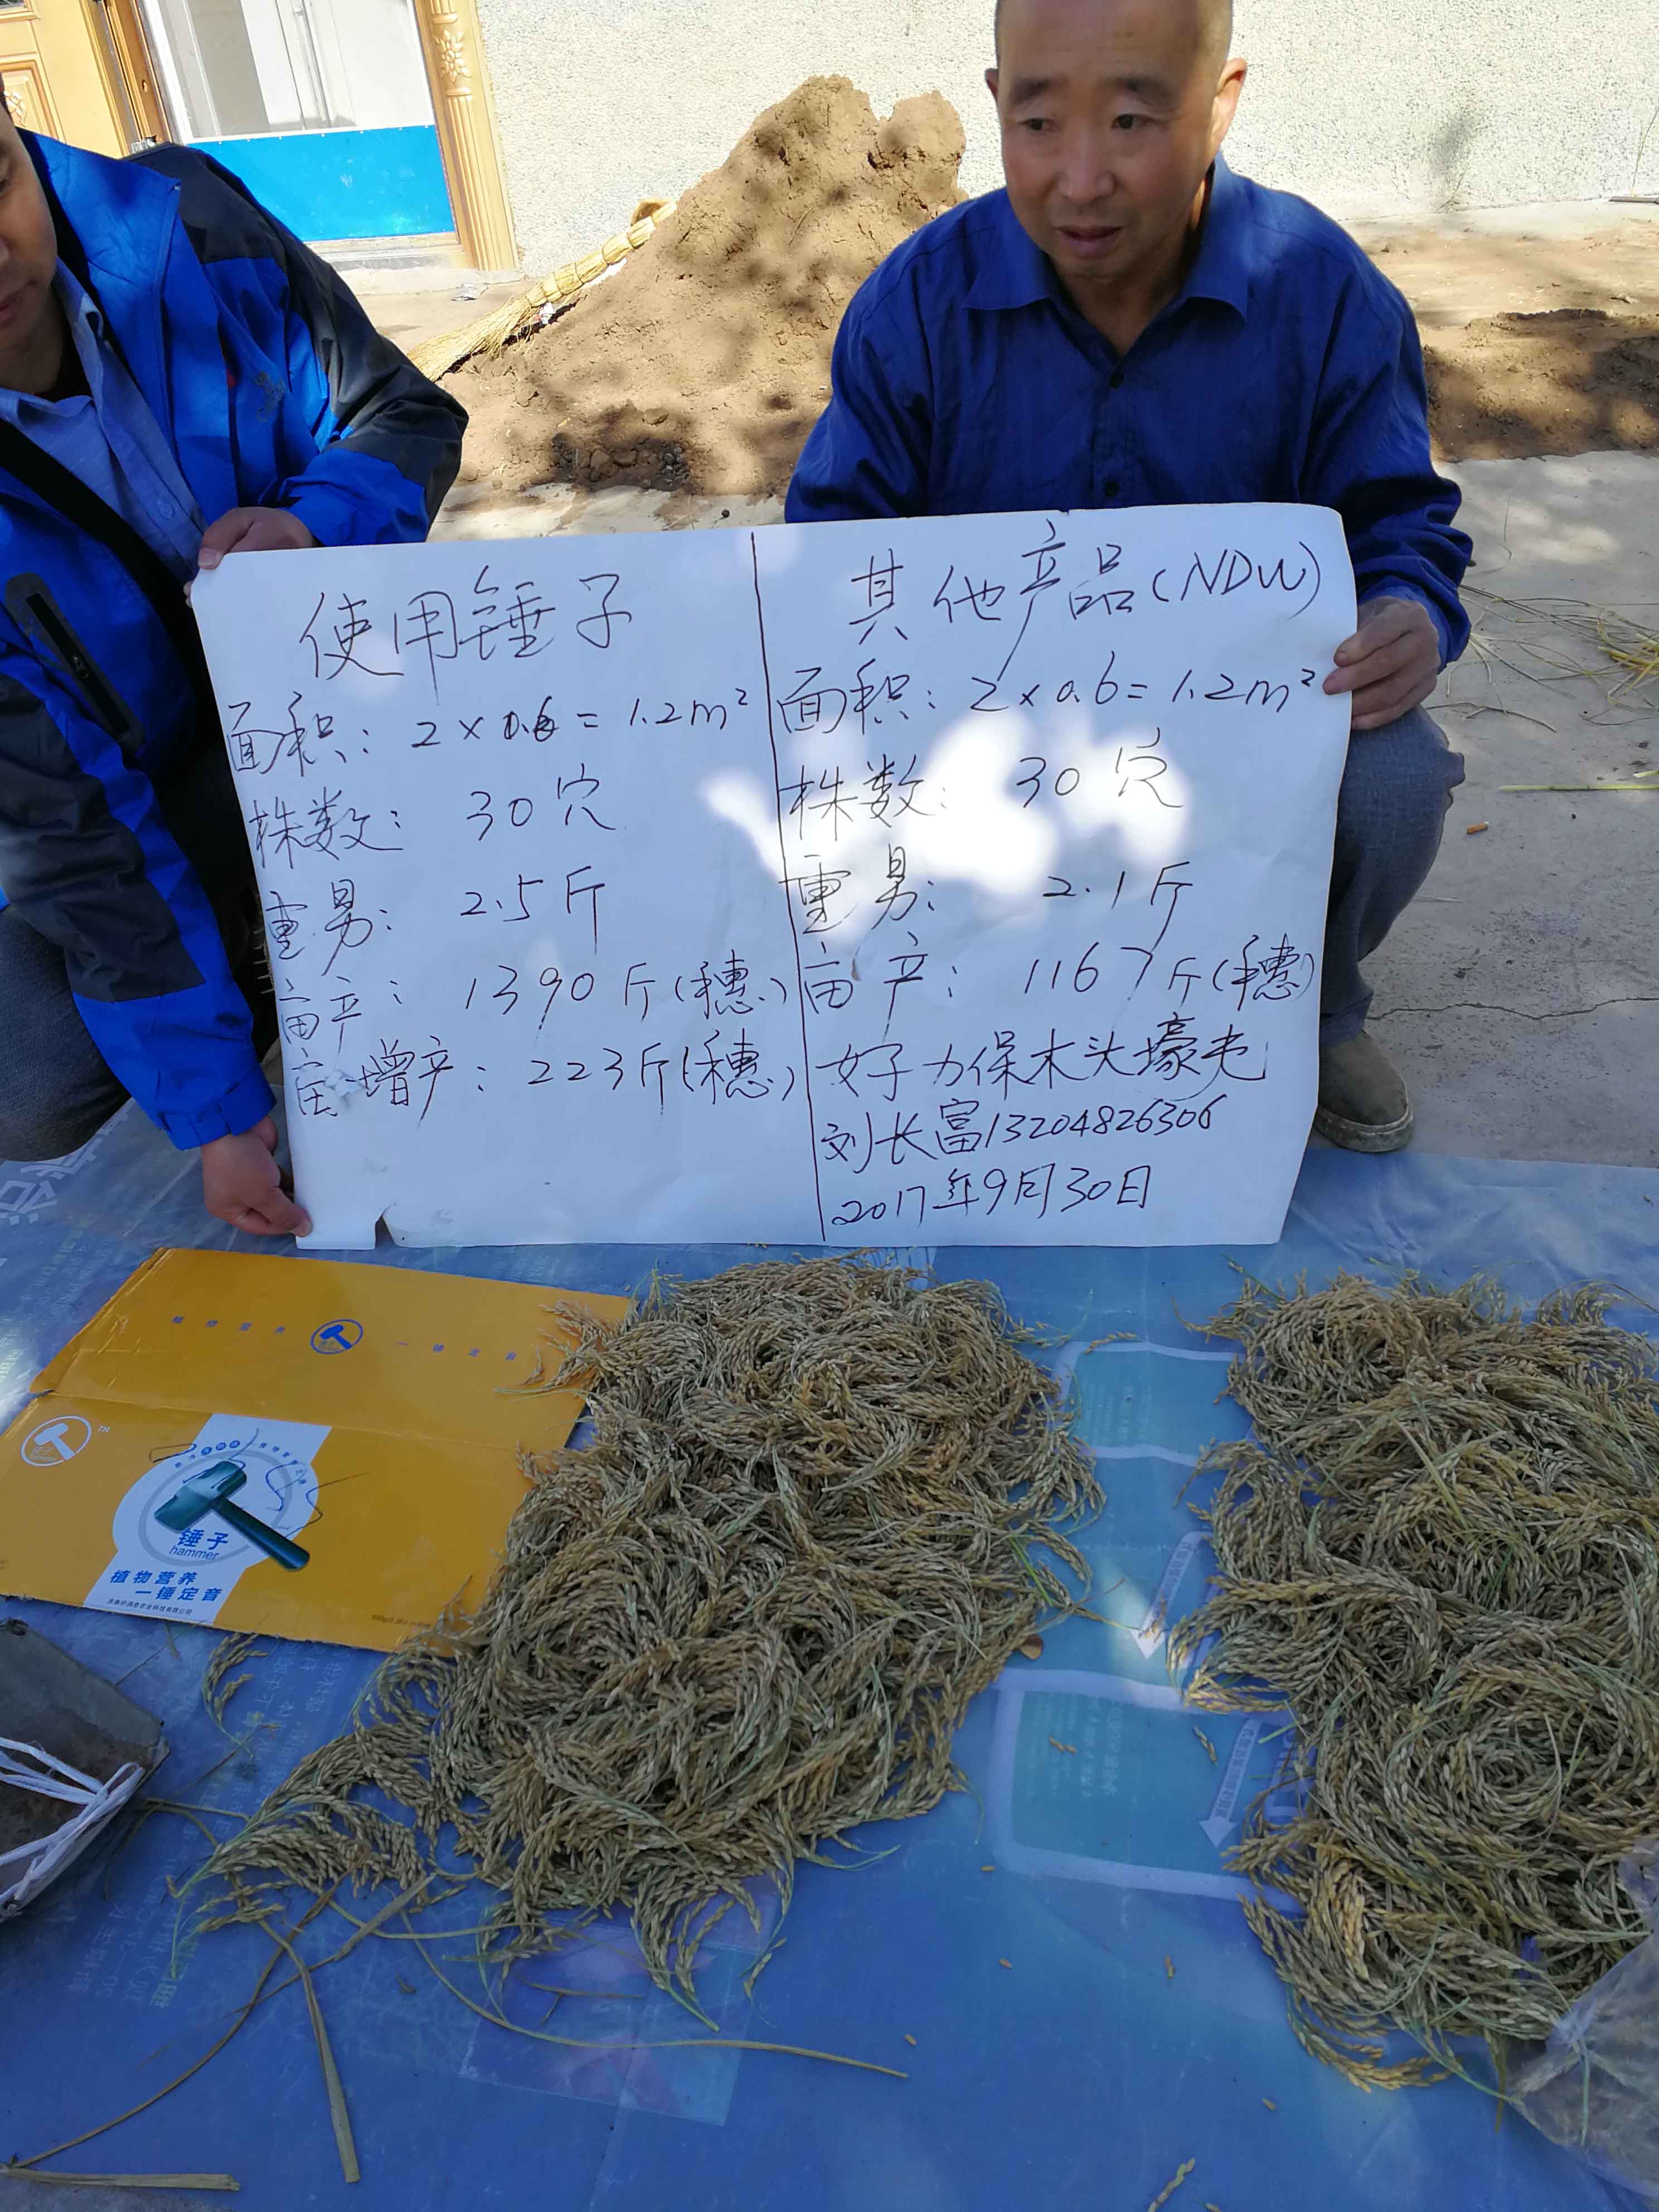 使用锤子
面积: 2×0.6=1.2m²
株数: 30穴
重男: 2.5斤
亩产: 1390斤(穗)
亩增产: 223斤(穗)
其他产品(NDW)
面积: 2×0.6=1.2m²
株数: 30穴
重男: 2.1斤
亩产: 1167斤(穗)
好力保木头壕屯
刘长富13204826306
2017年9月30日
植物营养 一锤定音
TM
锤子
hammer
植物营养
一锤定音